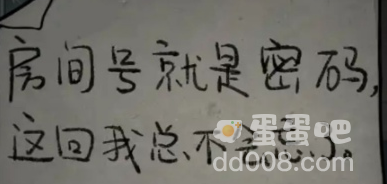 房间号就是密码,
这回我总不会忘了.
蛋蛋吧
dd008.com